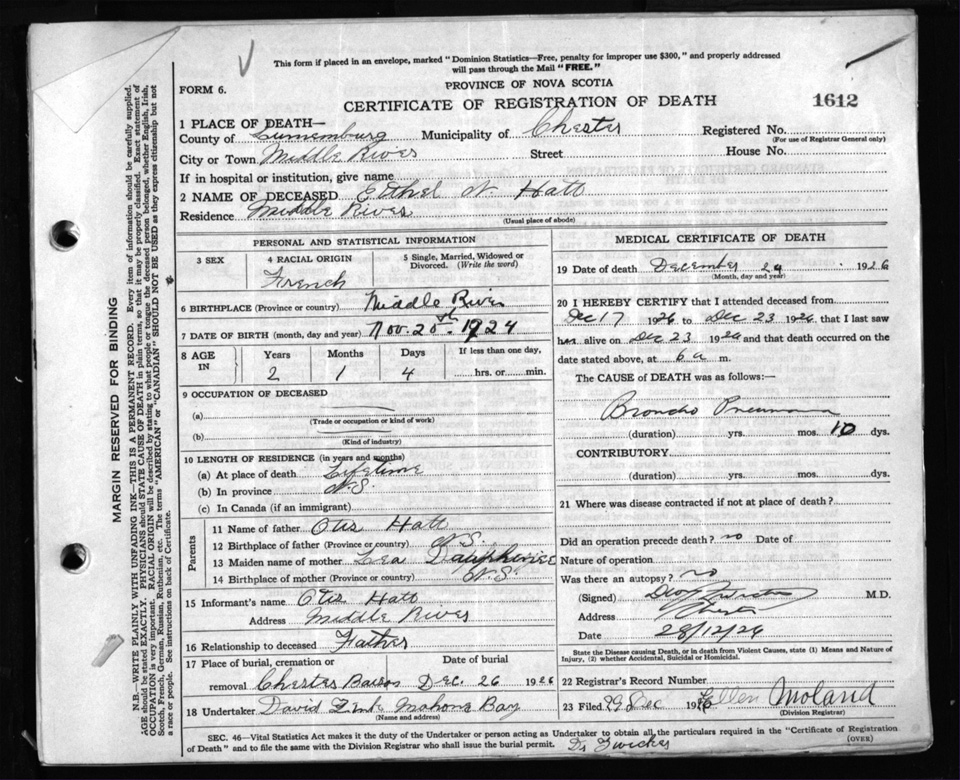 This form if placed in an envelope, marked "Dominion Statistics—Free, penalty for improper use $300," and properly addressed
will pass through the Mail "FREE."
PROVINCE OF NOVA SCOTIA
FORM 6.
CERTIFICATE OF REGISTRATION OF DEATH
1612
1 PLACE OF DEATH—
County of Lunenburg Municipality of Chester Registered No.
(For use of Registrar General only)
City or Town Middle River Street House No.
If in hospital or institution, give name
2 NAME OF DECEASED Ethel N. Hatt
Residence Middle River
(Usual place of abode)
PERSONAL AND STATISTICAL INFORMATION
3 SEX
4 RACIAL ORIGIN
French
5 Single, Married, Widowed or
Divorced. (Write the word)
6 BIRTHPLACE (Province or country) Middle River
7 DATE OF BIRTH (month, day and year) Nov. 20th 1924
8 AGE IN
Years 2
Months 1
Days 4
If less than one day,
hrs. or min.
9 OCCUPATION OF DECEASED
(a)
(Trade or occupation or kind of work)
(b)
(Kind of industry)
10 LENGTH OF RESIDENCE (in years and months)
(a) At place of death Lifetime
(b) In province N.S.
(c) In Canada (if an immigrant)
Parents
11 Name of father Otis Hatt
12 Birthplace of father (Province or country) N.S.
13 Maiden name of mother Dauphinee
14 Birthplace of mother (Province or country) N.S.
15 Informant's name Otis Hatt
Address Middle River
16 Relationship to deceased Father
17 Place of burial, cremation or
removal Chester Basin
Date of burial
Dec. 26 1926
18 Undertaker David Zink Mahone Bay
(Name and address)
MEDICAL CERTIFICATE OF DEATH
19 Date of death December 24 1926
(Month, day and year)
20 I HEREBY CERTIFY that I attended deceased from
Dec 17 1926 to Dec 23 1926, that I last saw
alive on Dec 23 1926 and that death occurred on the
date stated above, at 6 a m.
The CAUSE of DEATH was as follows:—
Broncho Pneumonia
(duration) yrs. mos. 10 dys.
CONTRIBUTORY
(duration) yrs. mos. dys.
21 Where was disease contracted if not at place of death?
Did an operation precede death? no Date of
Nature of operation
Was there an autopsy? no
(Signed) M.D.
Address Chester
Date 28/12/26
State the Disease causing Death, or in death from Violent Causes, state (1) Means and Nature of
Injury, (2) whether Accidental, Suicidal or Homicidal.
22 Registrar's Record Number
23 Filed 29 Dec 1926 Ellen Moland
(Division Registrar)
SEC. 46—Vital Statistics Act makes it the duty of the Undertaker or person acting as Undertaker to obtain all the particulars required in the "Certificate of Registration
of Death" and to file the same with the Division Registrar who shall issue the burial permit. Dr Zwicker (OVER)
MARGIN RESERVED FOR BINDING
N.B.—WRITE PLAINLY WITH UNFADING INK—THIS IS A PERMANENT RECORD. Every item of information should be carefully supplied.
AGE should be stated EXACTLY. PHYSICIANS should STATE CAUSE OF DEATH in plain terms, so that it may be properly classified. Exact statement of
OCCUPATION is very important. RACIAL ORIGIN will be described by stating to what people or tongue the deceased person belonged, whether English, Irish,
Scotch, French, German, Russian, Ruthenian, etc. The terms "AMERICAN" or "CANADIAN" SHOULD NOT BE USED as they express citizenship but not
a race or people. See instructions on back of Certificate.